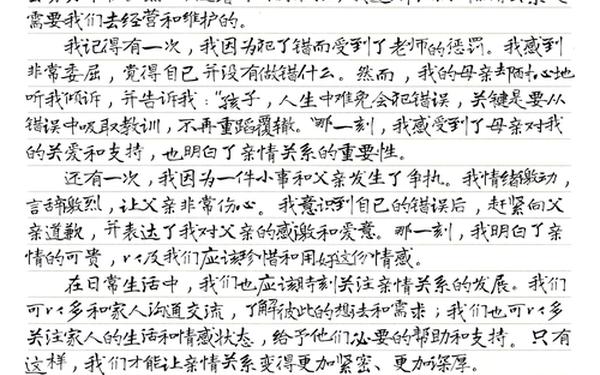 需要我们去经营和维护的。
我记得有一次，我因为犯了错而受到了老师的惩罚。我感到
非常委屈，觉得自己并没有做错什么。然而，我的母亲却耐心地
听我倾诉，并告诉我："孩子，人生中难免会犯错误，关键是要从
错误中吸取教训，不再重蹈覆辙。"那一刻，我感受到了母亲对我
的关爱和支持，也明白了亲情关系的重要性。
还有一次，我因为一件小事和父亲发生了争执。我情绪激动，
言辞激烈，让父亲非常伤心。我意识到自己的错误后，赶紧向父
亲道歉，并表达了我对父亲的感激和爱意。那一刻，我明白了亲
情的可贵，以及我们应该珍惜和用好这份情感。
在日常生活中，我们也应该时刻关注亲情关系的发展。我们
可以多和家人沟通交流，了解彼此的想法和需求；我们也可以多
关注家人的生活和情感状态，给予他们必要的帮助和支持。只有
这样，我们才能让亲情关系变得更加紧密、更加深厚。